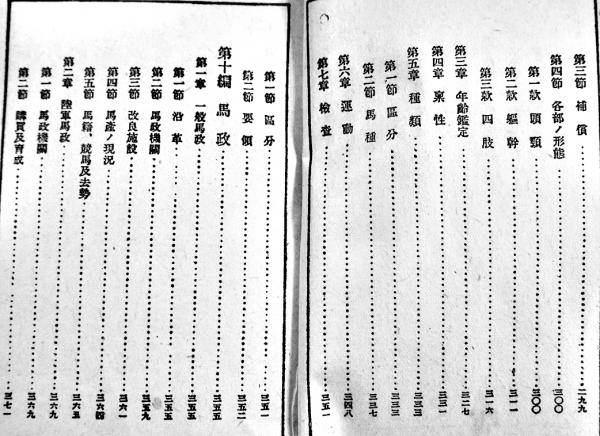 第三節 補償 二九九
第四節 各部ノ形態 三〇〇
第一款 頭頸 三〇〇
第二款 軀幹 三一一
第三款 四肢 三一六
第三章 年齡鑑定 三二七
第四章 稟性 三三一
第五章 種類 三三三
第一節 區分 三三三
第二節 馬種 三三七
第六章 運動 三四八
第七章 檢査 三五一
第一節 區分 三五一
第二節 要領 三五二
第十編 馬政 三五五
第一章 一般馬政 三五五
第一節 沿革 三五五
第二節 馬政機關 三五九
第三節 改良施設 三六一
第四節 馬產ノ現況 三六四
第五節 馬籍、競馬及去勢 三六五
第二章 陸軍馬政 三六九
第一節 馬政機關 三六九
第二節 購買及育成 三七一